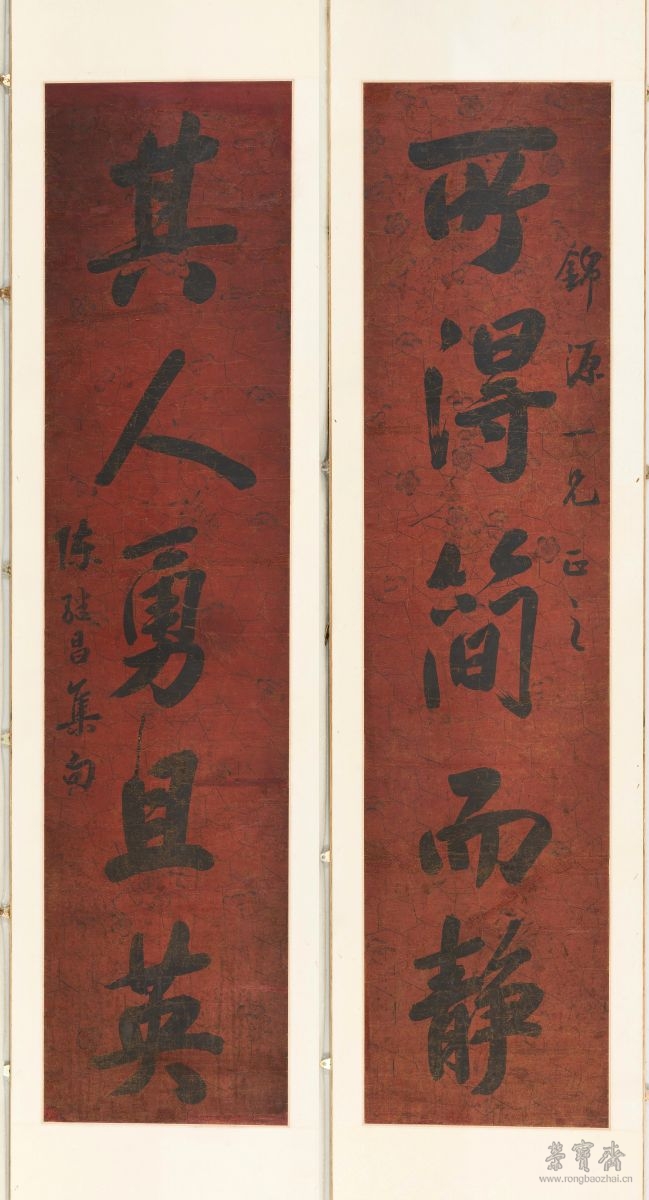 錦源一兄正之
所得简而静
其人勇且英
陈继昌集句
榮寶齋
www.rongbaozhai.cn